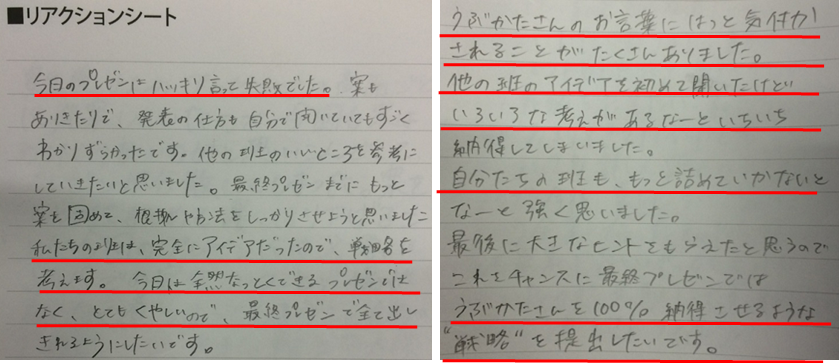 ■リアクションシート
今日のプレゼンはハッキリ言って失敗でした。案も
ありきたりで、発表の仕方も自分で聞いていてもすごく
わかりずらかったです。他の班のいいところを参考に
していきたいと思いました。最終プレゼンまでにもっと
案を固めて、根拠や方法をしっかりさせようと思いました
私たちのは、完全にアイデアだったので、戦略を
考えます。今日は全然なっとくできるプレゼンでは
なく、とてもくやしいので、最終プレゼンで全て出し
きれるようにしたいです。
うぶかたさんのお言葉にはっと気付か
されることがたくさんありました。
他の班のアイデアを初めて聞いたけど
いろいろな考えがあるなーといちいち
納得してしまいました。
自分たちの班も、もっと詰めていかないと
なーと強く思いました。
最後に大きなヒントをもらえたと思うので
これをチャンスに最終プレゼンでは
うぶかたさんを100%納得させるような
"戦略"を提出したいです。